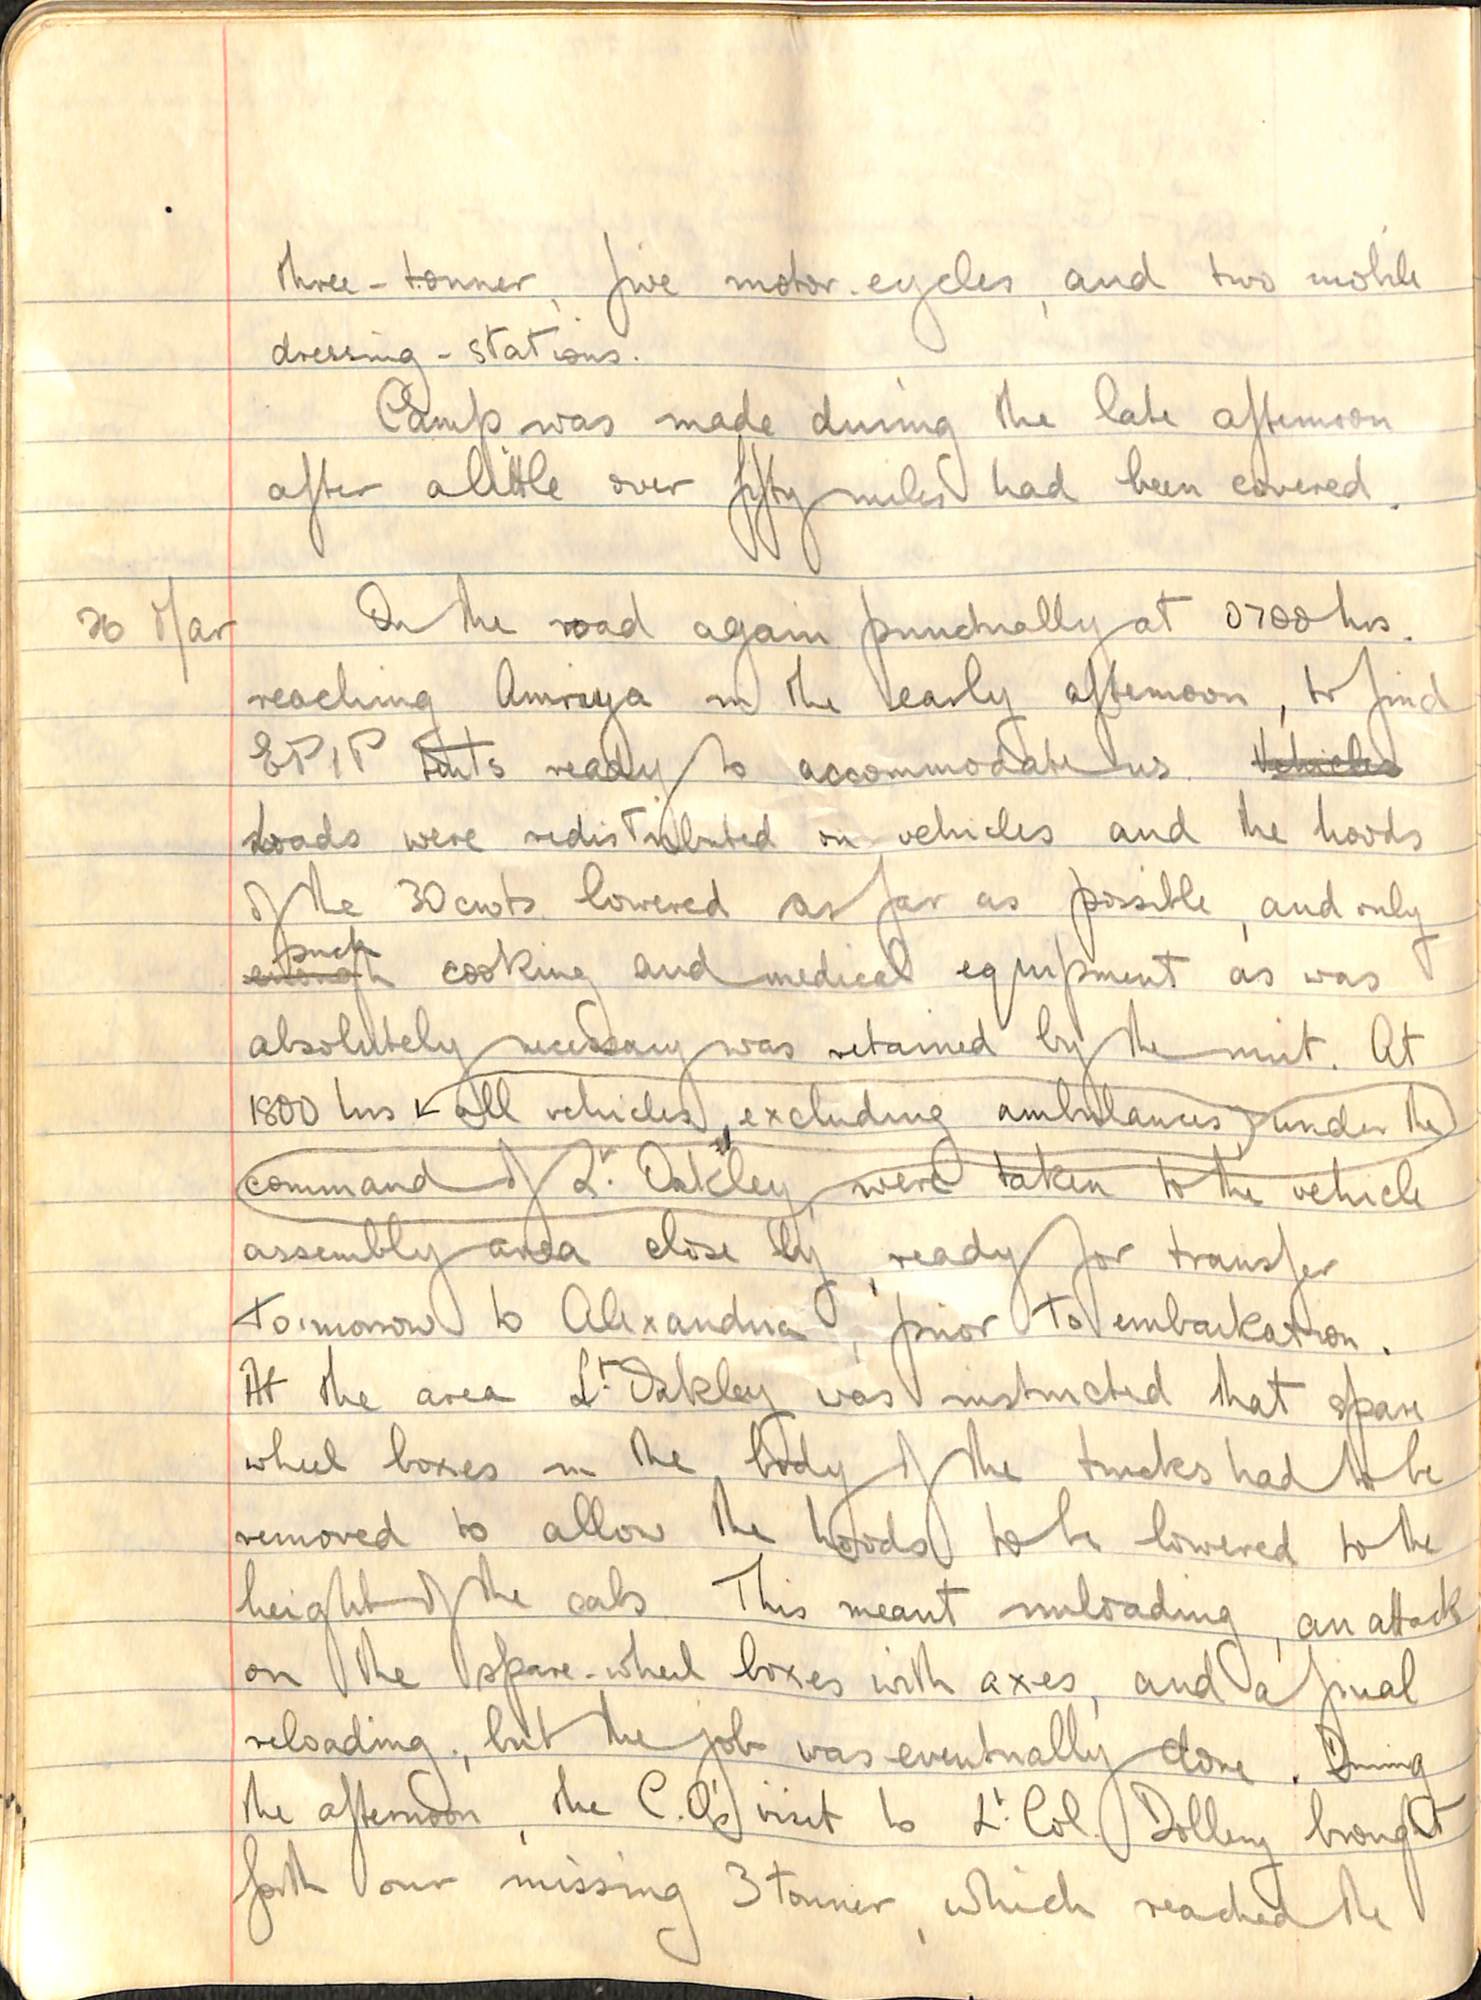 three-tonner, five motor-cycles, and two mobile
dressing-stations.
Camp was made during the late afternoon
after a little over fifty miles had been covered.
26 Mar On the road again punctually at 0700 hrs.
reaching Amriya in the early afternoon, to find
E.P.I.P tents ready to accommodate us. Vehicles
Loads were redistributed on vehicles and the hoods
of the 30 cwts. lowered as far as possible, and only
such
enough cooking and medical equipment as was
absolutely necessary was retained by the unit. At
1800 hrs all vehicles, excluding ambulances, under the
command of Lt. Oakley, were taken to the vehicle
assembly area close by, ready for transfer
to-morrow to Alexandria, prior to embarkation.
At the area Lt. Oakley was instructed that spare
wheel boxes in the body of the trucks had to be
removed to allow the hoods to be lowered to the
height of the cabs. This meant unloading, an attack
on the spare-wheel boxes with axes, and a final
reloading, but the job was eventually done. During
the afternoon, the C.O's visit to Lt. Col. Dollery brought
forth our missing 3 tonner, which reached the